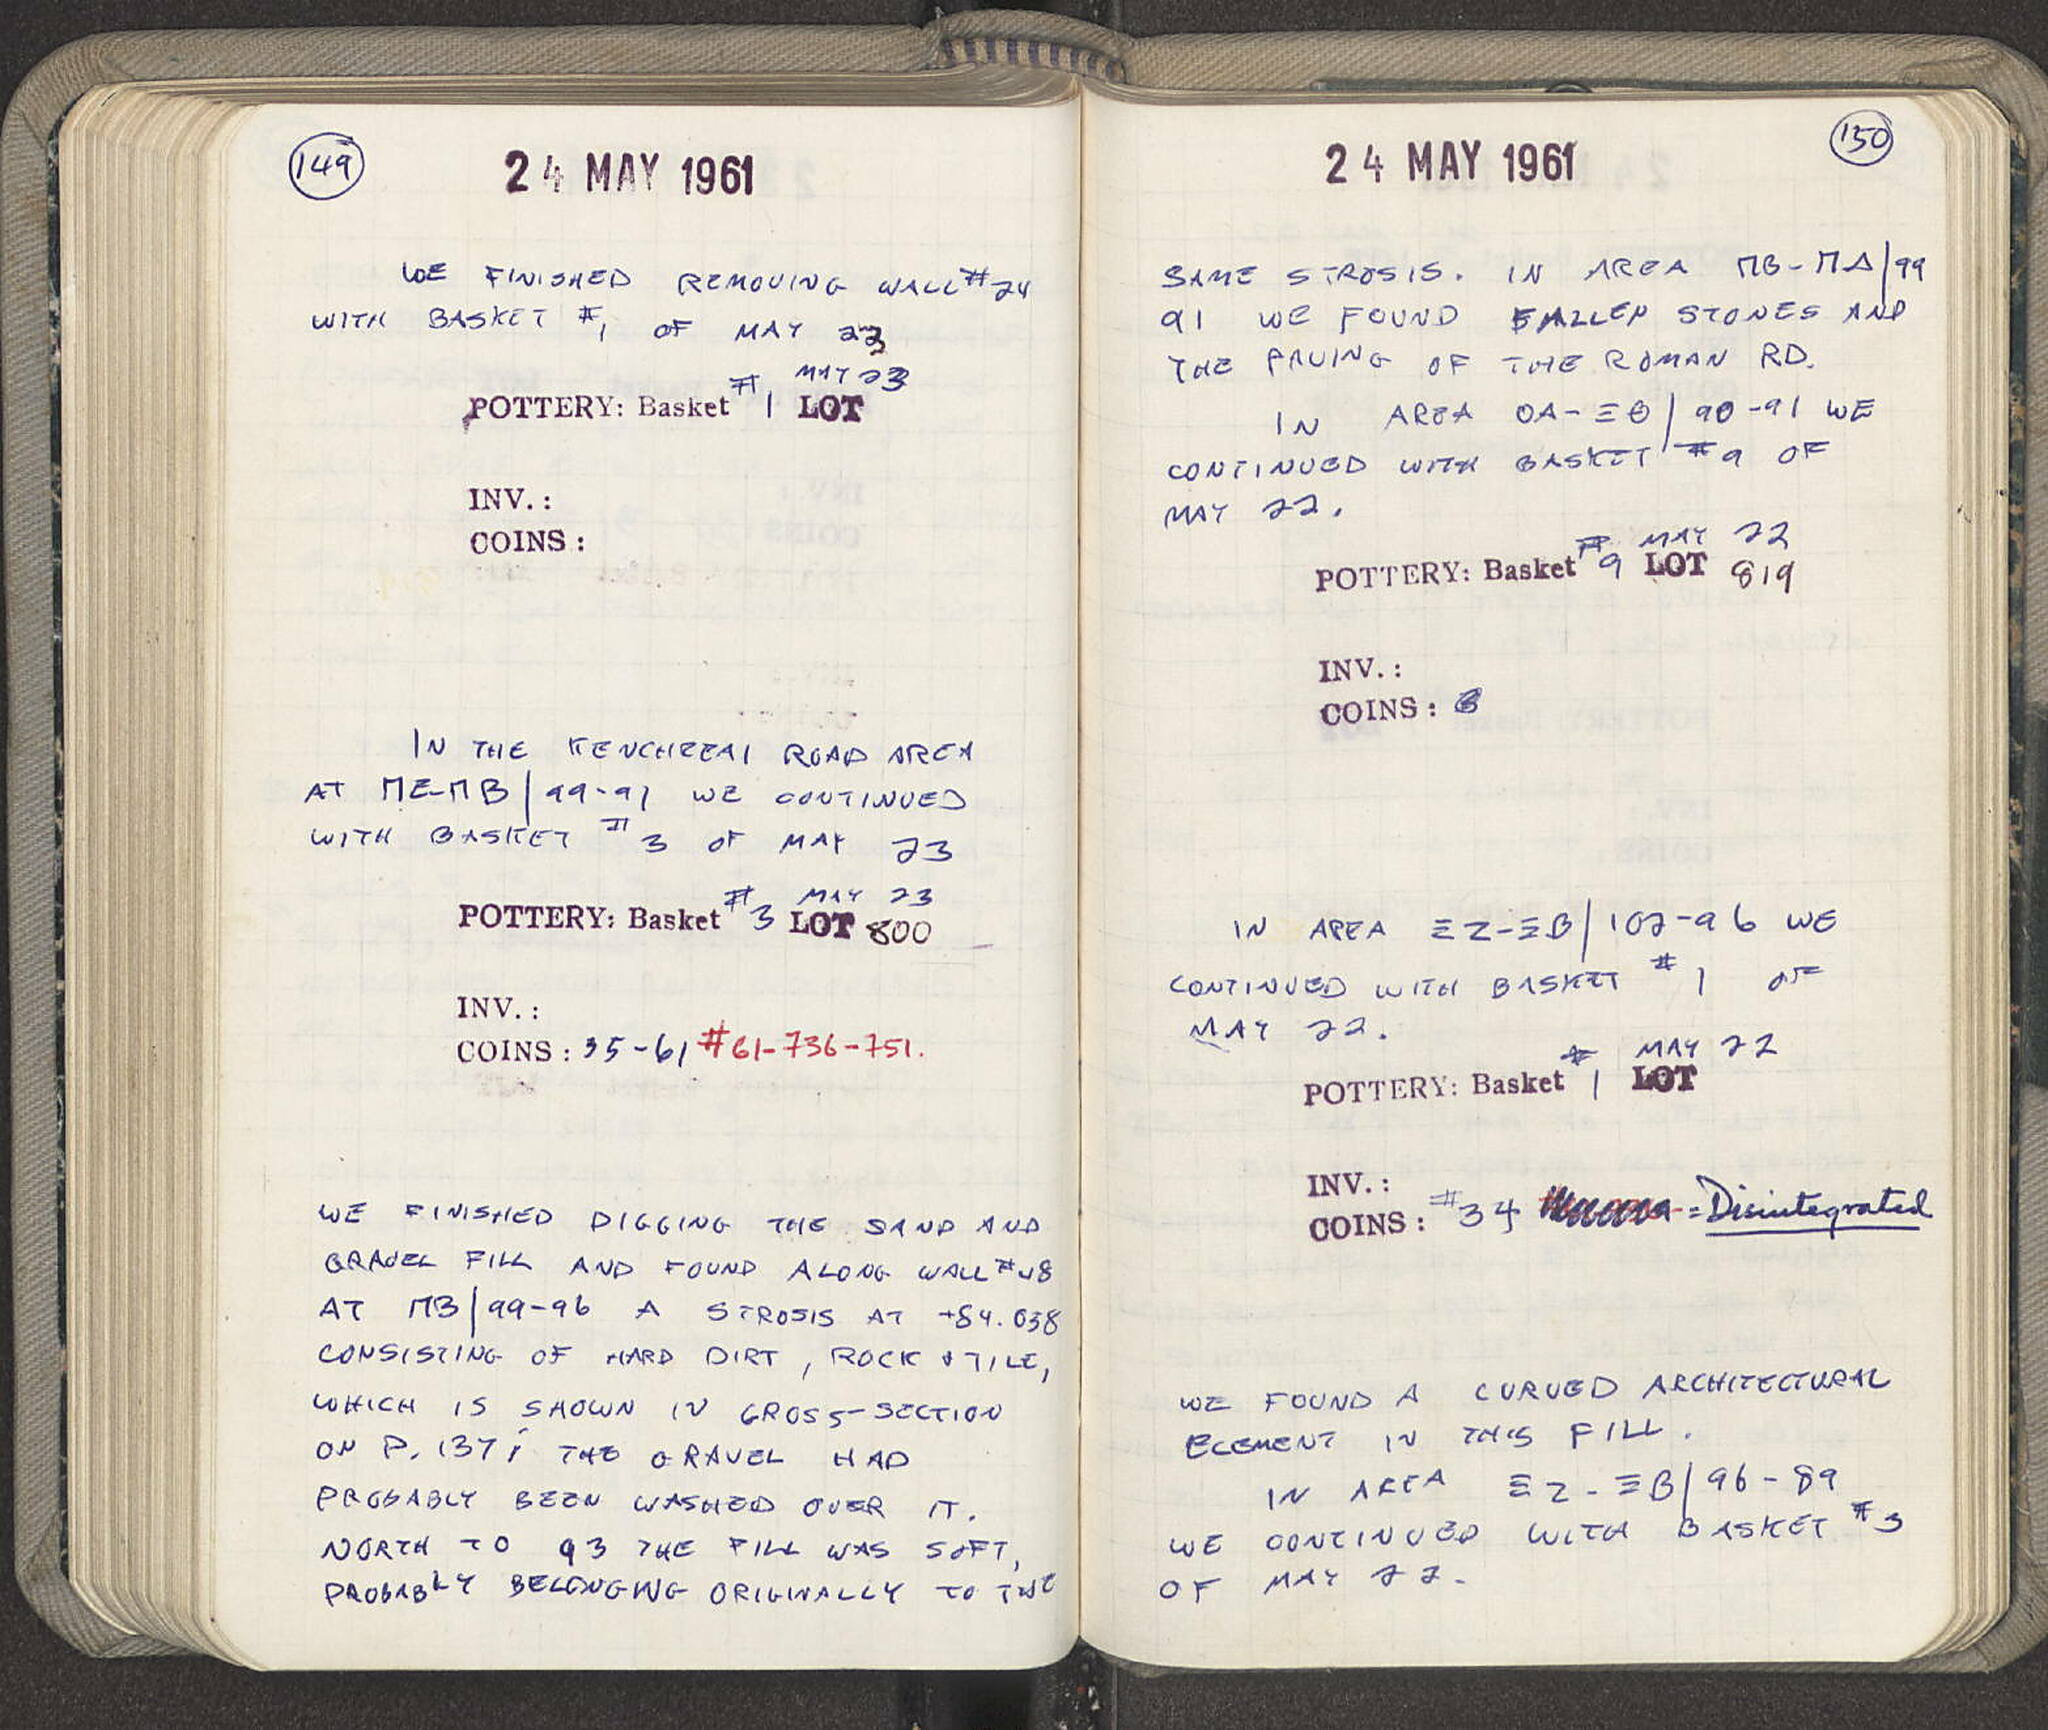 149
24 MAY 1961
WE FINISHED REMOVING WALL #24
WITH BASKET #1 OF MAY 23
# MAY 23
POTTERY: Basket 1 LOT
INV.:
COINS:
IN THE KENCHREAI ROAD AREA
AT ΠΕ-ΠΒ/99-91 WE CONTINUED
WITH BASKET #3 OF MAY 23
# MAY 23
POTTERY: Basket 3 LOT 800
INV.:
COINS: 35-61 #61-736-751.
WE FINISHED DIGGING THE SAND AND
GRAVEL FILL AND FOUND ALONG WALL #48
AT ΠΒ/99-96 A STROSIS AT +84.038
CONSISTING OF HARD DIRT, ROCK & TILE,
WHICH IS SHOWN IN CROSS-SECTION
ON P. 137; THE GRAVEL HAD
PROBABLY BEEN WASHED OVER IT.
NORTH TO 93 THE FILL WAS SOFT,
PROBABLY BELONGING ORIGINALLY TO THE
150
24 MAY 1961
SAME STROSIS. IN AREA ΠΒ-ΠΑ/99
91 WE FOUND FALLEN STONES AND
THE PAVING OF THE ROMAN RD.
IN AREA ΟΑ-ΞΘ/90-91 WE
CONTINUED WITH BASKET #9 OF
MAY 22.
# MAY 22
POTTERY: Basket 9 LOT 819
INV.:
COINS:
IN AREA ΞΖ-ΞΒ/102-96 WE
CONTINUED WITH BASKET #1 OF
MAY 22.
# MAY 22
POTTERY: Basket 1 LOT
INV.:
COINS: #34 = Disintegrated
WE FOUND A CURVED ARCHITECTURAL
ELEMENT IN THIS FILL.
IN AREA ΞΖ-ΞΒ/96-89
WE CONTINUED WITH BASKET #3
OF MAY 22.